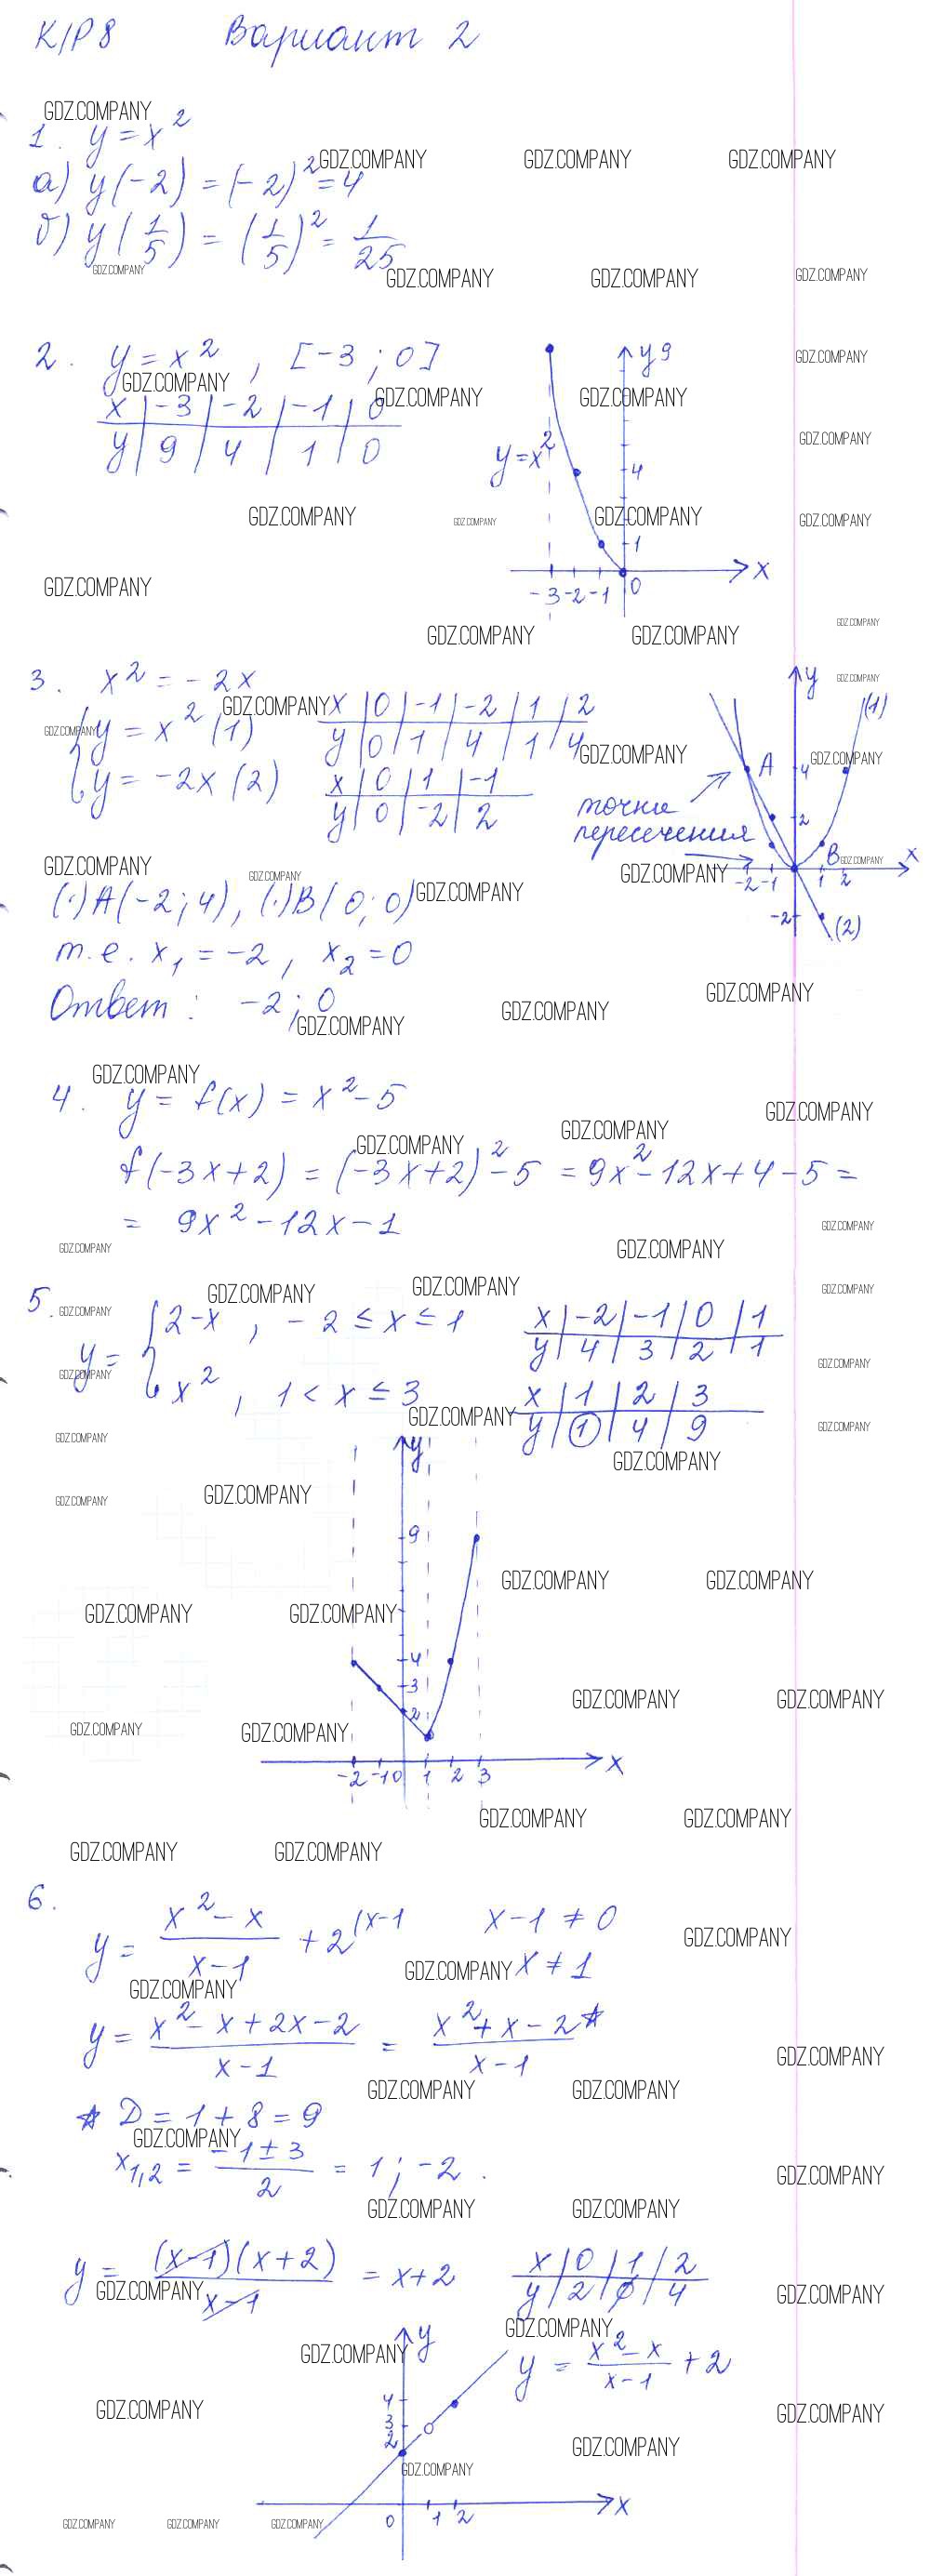 К/Р 8 Вариант 2
GDZ.COMPANY
1. y = x²
а) y(-2) = (-2)² = 4
б) y(1/5) = (1/5)² = 1/25
2. y = x², [-3; 0]
x | -3 | -2 | -1 | 0
y | 9 | 4 | 1 | 0
y 9
y = x²
4
1
-3 -2 -1 0 x
3. x² = -2x
{ y = x² (1)
{ y = -2x (2)
x | 0 | -1 | -2 | 1 | 2
y | 0 | 1 | 4 | 1 | 4
x | 0 | 1 | -1
y | 0 | -2 | 2
y
(1)
A 4
точки
пересечения
2
B x
-2 -1 1 2
-2 (2)
(·)A(-2; 4), (·)B(0; 0)
т.е. x₁ = -2, x₂ = 0
Ответ: -2; 0
4. y = f(x) = x² - 5
f(-3x+2) = (-3x+2)² - 5 = 9x² - 12x + 4 - 5 =
= 9x² - 12x - 1
5. y = { 2-x, -2 ≤ x ≤ 1
{ x², 1 < x ≤ 3
x | -2 | -1 | 0 | 1
y | 4 | 3 | 2 | 1
x | 1 | 2 | 3
y | 1 | 4 | 9
y
9
4
3
2
-2 -1 0 1 2 3 x
6. y = (x² - x)/(x-1) + 2^(x-1 x-1 ≠ 0
x ≠ 1
y = (x² - x + 2x - 2)/(x-1) = (x² + x - 2*)/(x-1)
* D = 1 + 8 = 9
x₁,₂ = (-1 ± 3)/2 = 1; -2.
y = (x-1)(x+2)/(x-1) = x+2
x | 0 | 1 | 2
y | 2 | ø | 4
y
y = (x² - x)/(x-1) + 2
4
3
2
0 1 2 x